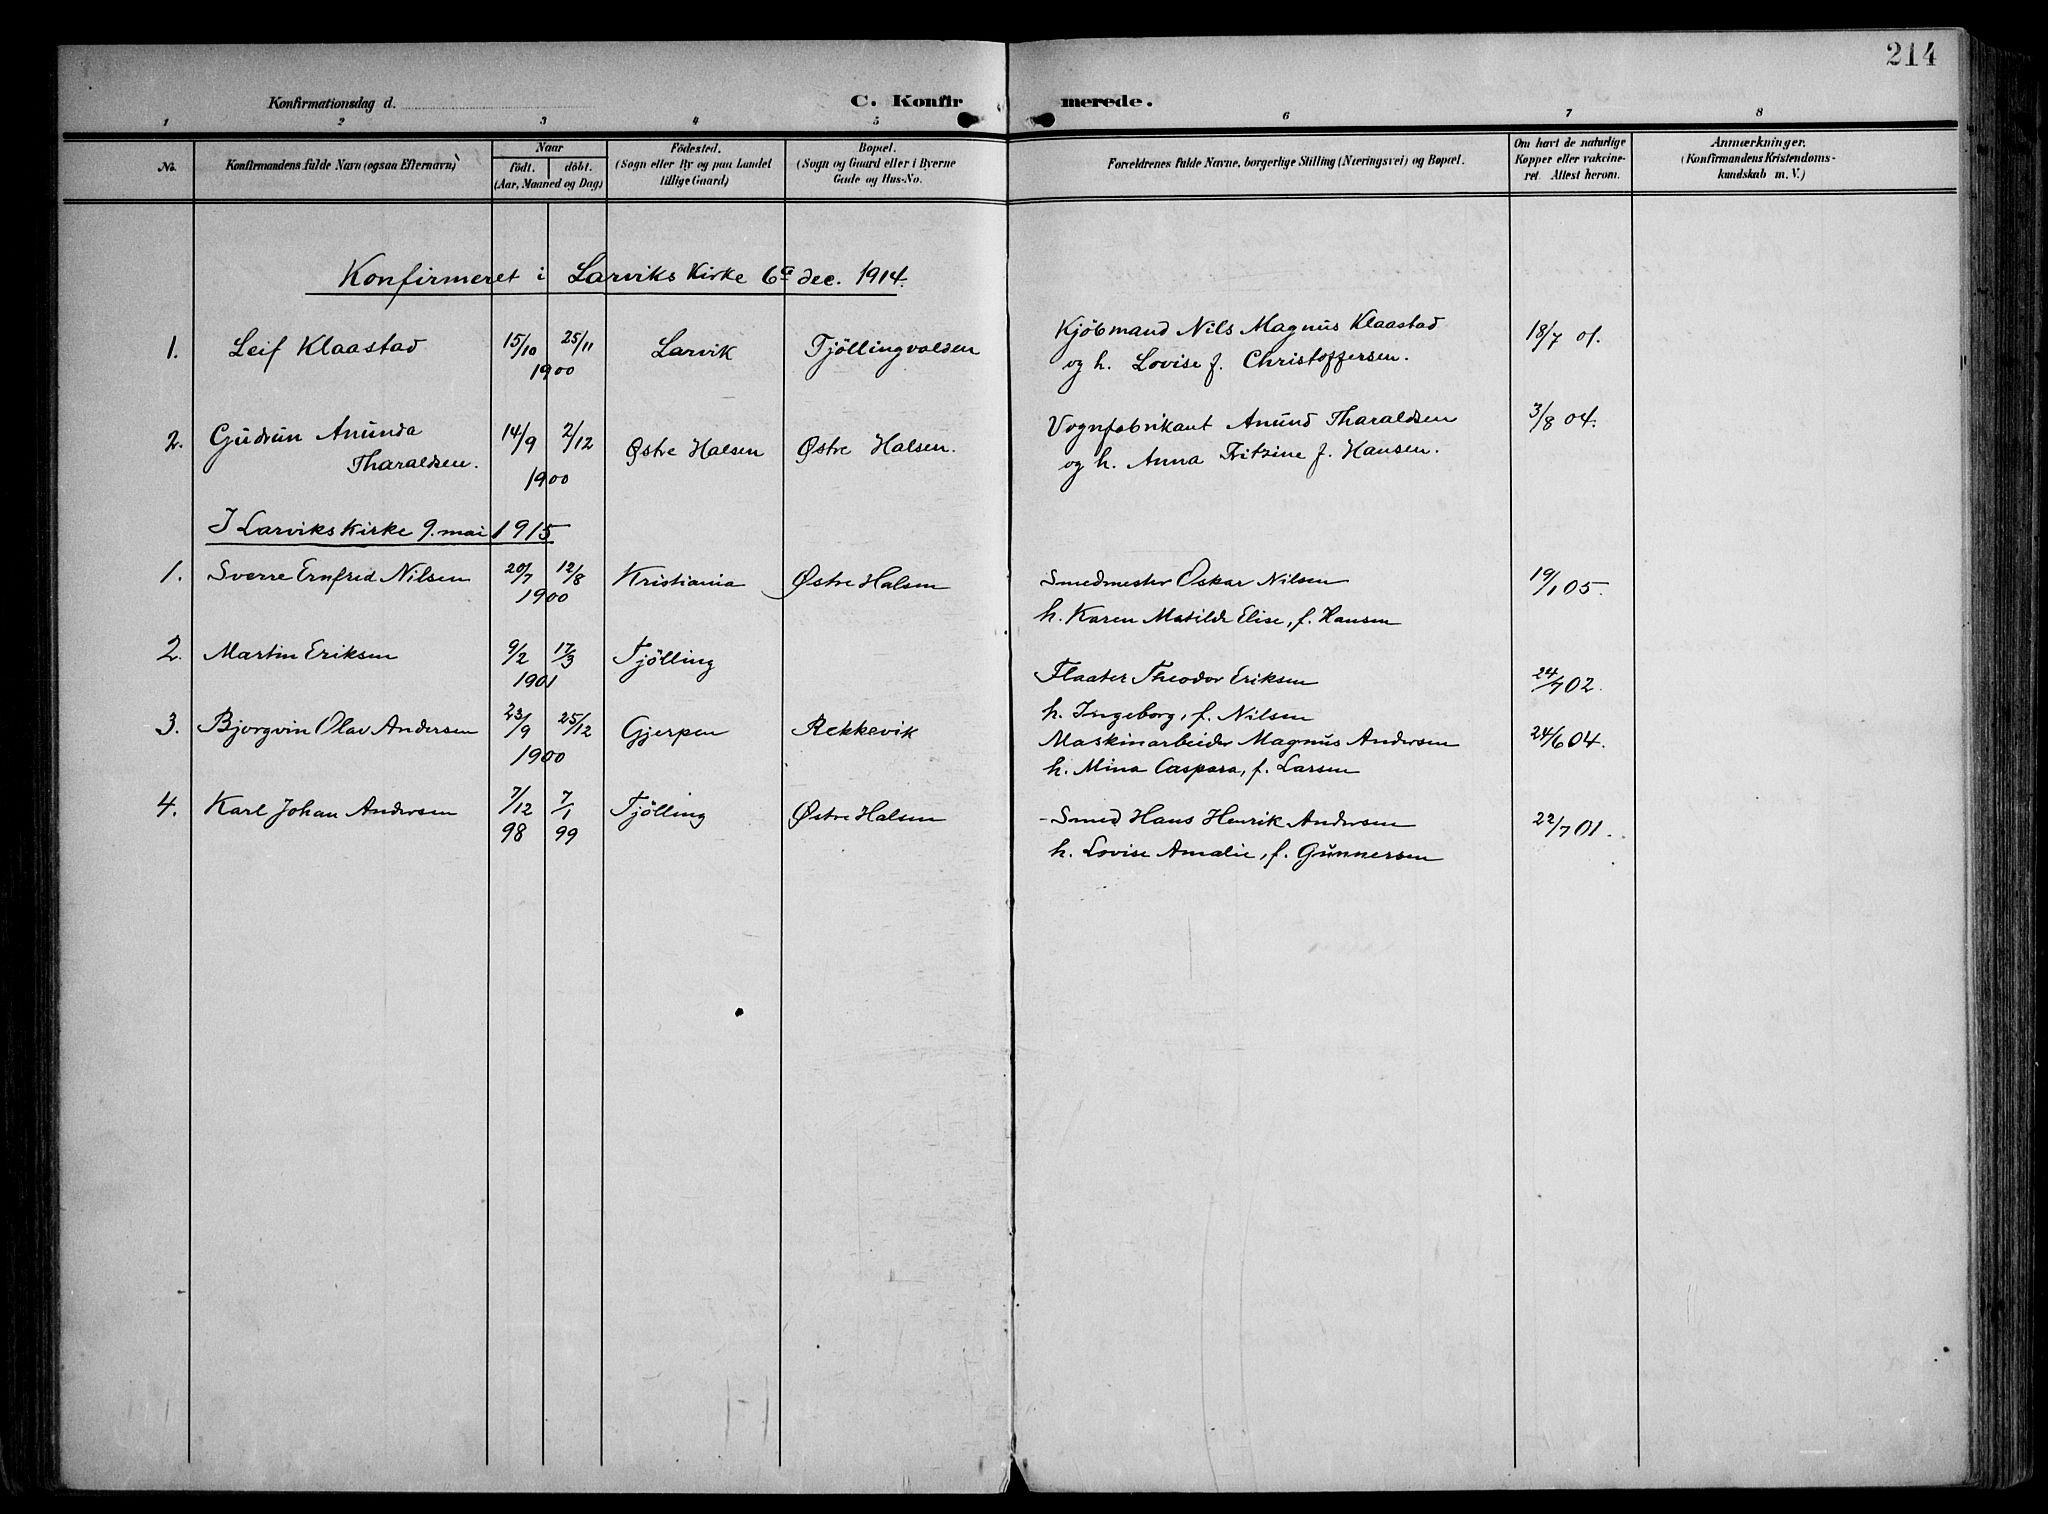 214
Konfirmationsdag d. C. Konfirmerede.
1 2 3 4 5 6 7 8
No. Konfirmandens fulde Navn (ogsaa Efternavn) Naar födt. döbt. (Aar, Maaned og Dag) Födested. (Sogn eller By og paa Landet tillige Gaard) Bopæl. (Sogn og Gaard eller i Byerne Gade og Hus-No. Forældrenes fulde Navne, borgerlige Stilling (Næringsvei) og Bopæl. Om havt de naturlige Kopper eller vakcineret. Attest herom. Anmærkninger. (Konfirmandens Kristendomskundskab m. V.)
Konfirmeret i Larviks Kirke 6te dec. 1914.
1. Leif Klaastad 15/10 25/11 Larvik Tjöllingvolden Kjöbmand Nils Magnus Klaastad 18/7 01.
1900 og h. Lovise f. Christoffersen.
2. Gudrun Anunda 14/9 2/12 Østre Halsen Østre Halsen. Vognfabrikant Anund Tharaldsen 3/8 04.
Tharaldsen. og h. Anna Fritzine f. Hansen.
1900
I Larviks Kirke 9. mai 1915
1. Sverre Ernfred Nilsen 20/7 12/8 Kristiania Østre Halsen Smedmester Oskar Nilsen 19/1 05.
1900 h. Karen Matilde Elise, f. Hansen
2. Martin Eriksen 9/2 17/3 Tjölling Flaater Theodor Eriksen 24/7 02.
1901 h. Ingeborg, f. Nilsen
3. Bjorgvin Olav Andersen 23/9 25/12 Gjerpen Rekkevik Maskinarbeider Magnus Andersen 24/6 04.
1900 h. Mina Caspara, f. Larsen
4. Karl Johan Andersen 7/12 7/1 Tjölling Østre Halsen Smed Hans Henrik Andersen 22/7 01.
98 99 h. Lovise Amalie, f. Gunnersen